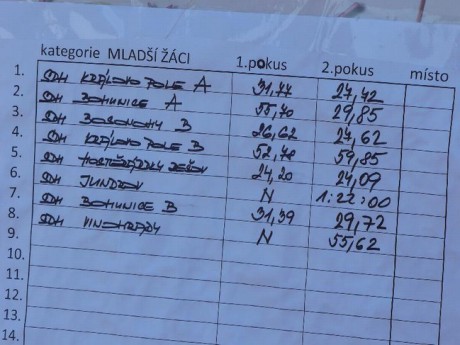 kategorie MLADŠÍ ŽÁCI 1.pokus 2.pokus místo
1. SDH KRÁLOVO POLE A 31,77 27,42
2. SDH BOHUNICE A 55,70 29,85
3. SDH BOSONOHY B 26,62 24,62
4. SDH KRÁLOVO POLE B 52,78 59,85
5. SDH 24,20 24,09
6. SDH JUNDROV N 1:22:00
7. SDH BOHUNICE B 31,39 29,72
8. SDH VINOHRADY N 55,62
9.
10.
11.
12.
13.
14.